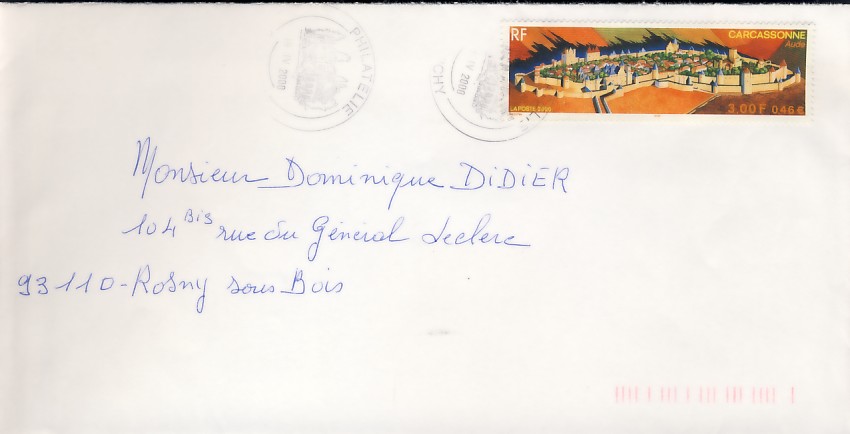 PHILATELIE
IV 2000
CHY
IV 2000
RF
CARCASSONNE
Aude
LA POSTE 2000
3.00 F 0.46 €
Monsieur Dominique DiDiER
104 Bis rue du Général Leclerc
93110-Rosny sous Bois